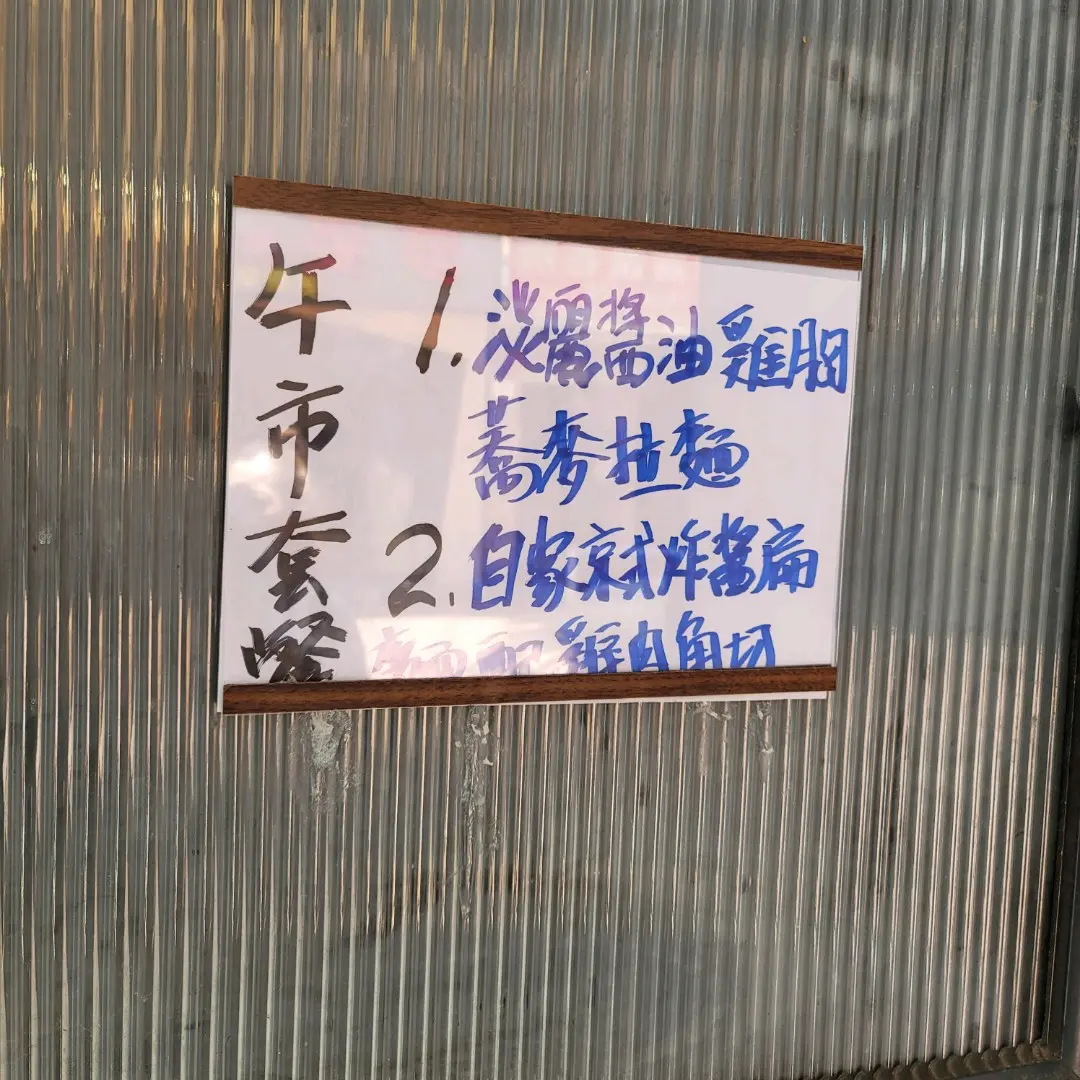 午市套餐
1. 淡麗醬油雞胸
蕎麥拉麵
2. 自家京式炸醬扁
麵配雞肉角切